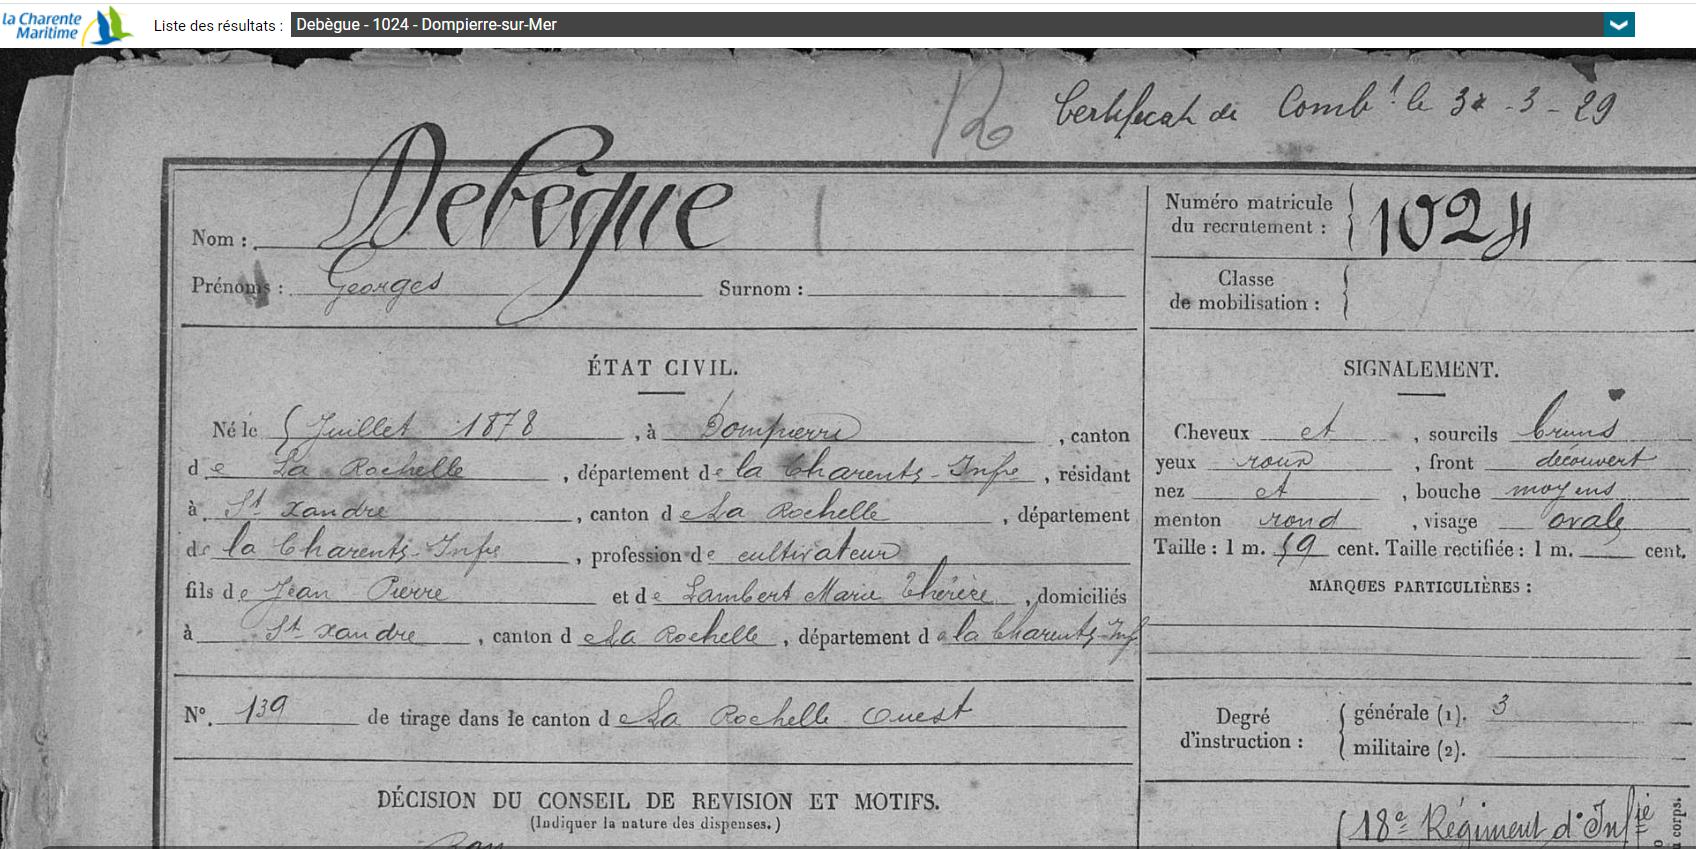 la Charente
Maritime
Liste des résultats : Debègue - 1024 - Dompierre-sur-Mer
Certificat de Comb.t le 3 - 3 - 29
Nom : Debègue
Prénoms : Georges Surnom :
Numéro matricule
du recrutement : 1024
Classe
de mobilisation :
ÉTAT CIVIL.
Né le 5 Juillet 1878, à Dompierre, canton
de La Rochelle, département de la Charente-Infre, résidant
à St Xandre, canton de La Rochelle, département
de la Charente-Infre, profession de cultivateur
fils de Jean Pierre et de Lambert Marie Thérèse, domiciliés
à St Xandre, canton de La Rochelle, département de la Charente-Inf
N°. 139 de tirage dans le canton de La Rochelle Ouest
DÉCISION DU CONSEIL DE REVISION ET MOTIFS.
(Indiquer la nature des dispenses.)
SIGNALEMENT.
Cheveux et, sourcils bruns
yeux roux, front découvert
nez et, bouche moyens
menton rond, visage ovale
Taille : 1 m. 59 cent. Taille rectifiée : 1 m. cent.
MARQUES PARTICULIÈRES :
Degré
d'instruction :
générale (1). 3
militaire (2).
18e Régiment d'Infie
corps.